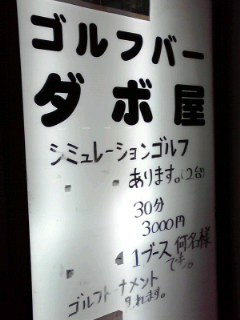 ゴルフバー
ダボ屋
シミュレーションゴルフ
あります。(2台)
30分
3000円
1ブース 何名様
でも。
ゴルフトーナメント
すれます。